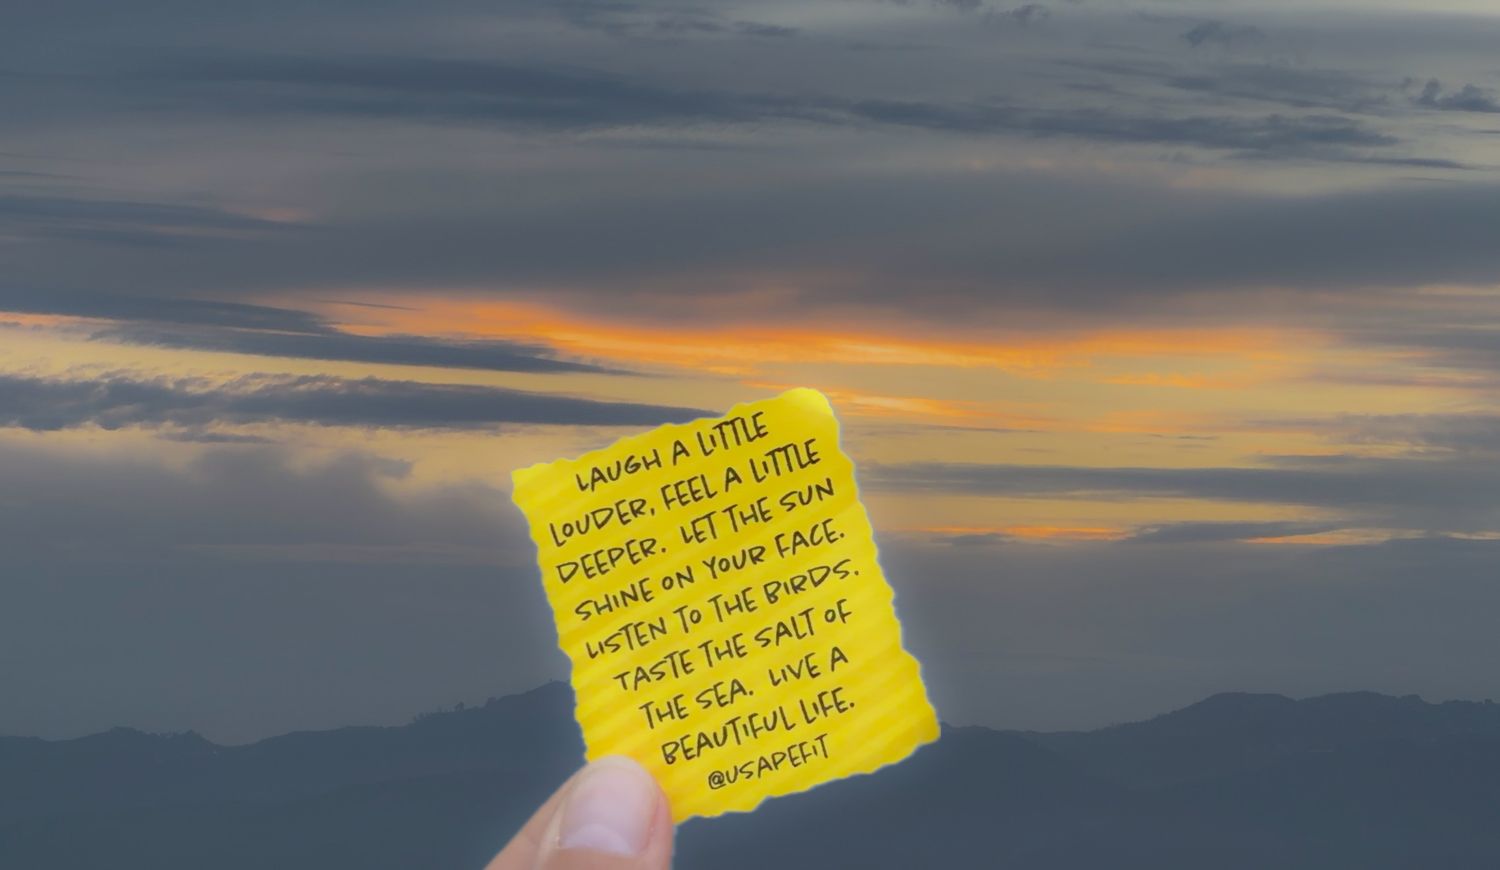 LAUGH A LITTLE
LOUDER, FEEL A LITTLE
DEEPER. LET THE SUN
SHINE ON YOUR FACE.
LISTEN TO THE BIRDS.
TASTE THE SALT OF
THE SEA. LIVE A
BEAUTIFUL LIFE.
@USAPEFIT